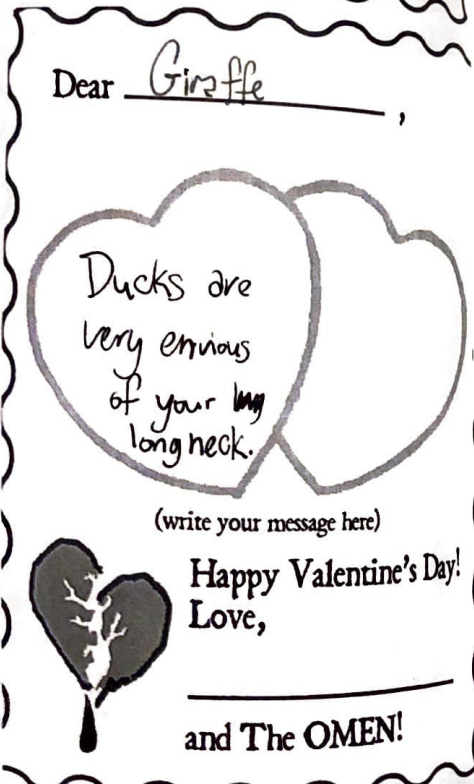 Dear Giraffe,
Ducks are
very envious
of your
long neck.
(write your message here)
Happy Valentine's Day!
Love,
and The OMEN!